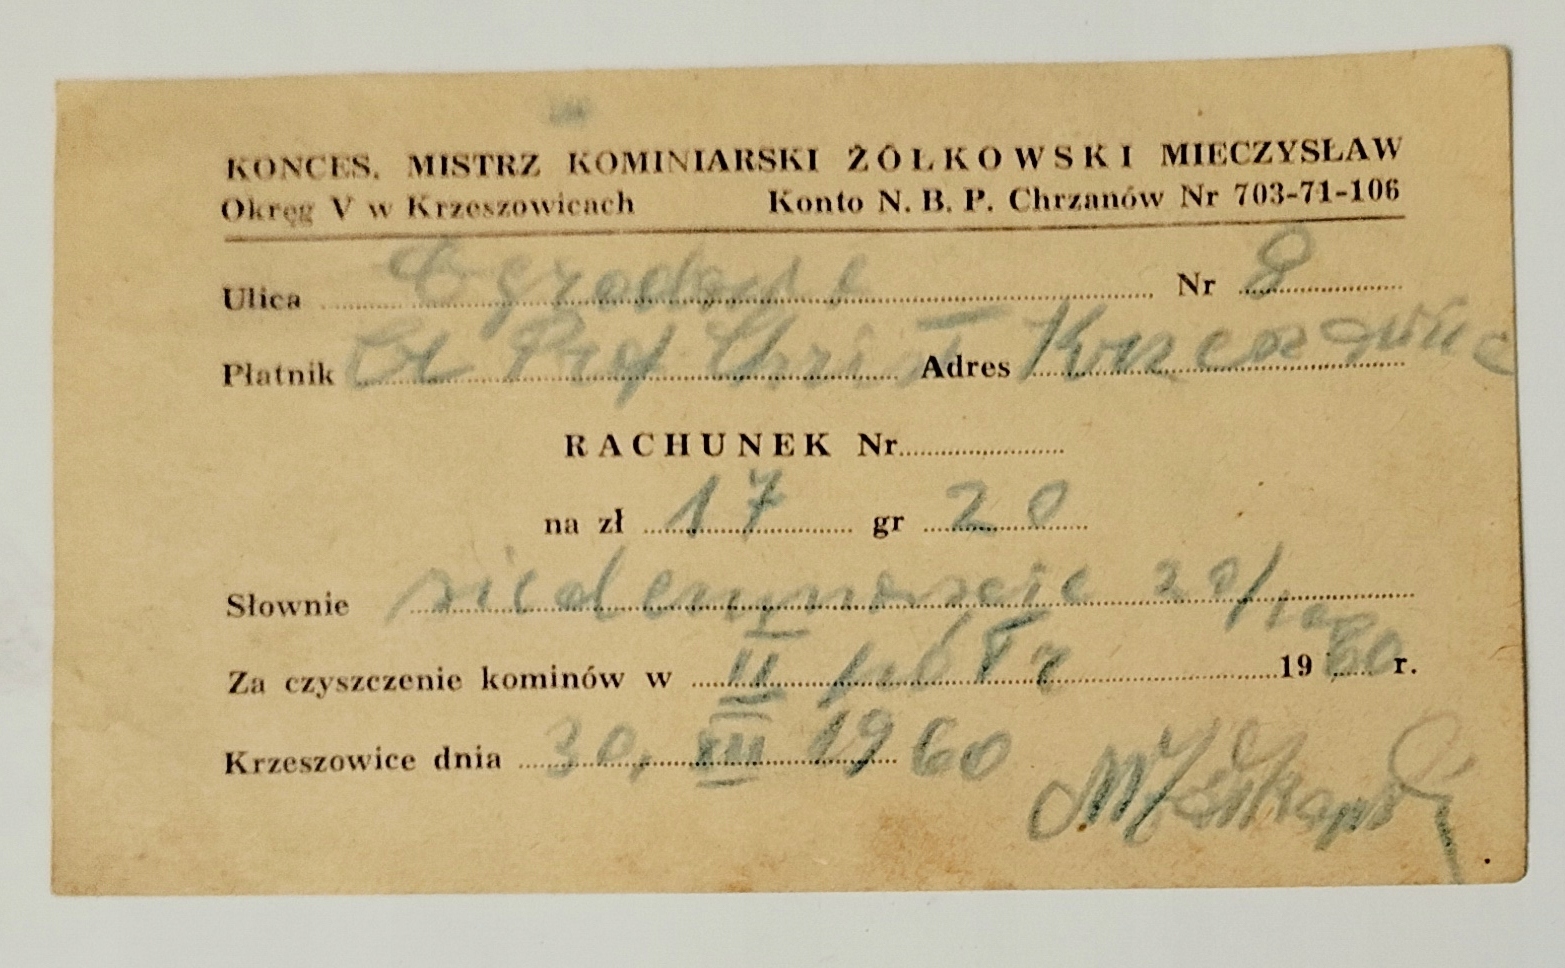 KONCES. MISTRZ KOMINIARSKI ŻÓŁKOWSKI MIECZYSŁAW
Okręg V w Krzeszowicach Konto N. B. P. Chrzanów Nr 703-71-106
Ulica Ogrodowa Nr 8
Płatnik Adres Krzeszowice
RACHUNEK Nr
na zł 17 gr 20
Słownie siedemnaście 20/100
Za czyszczenie kominów w II półr 1960 r.
Krzeszowice dnia 30, XII 1960